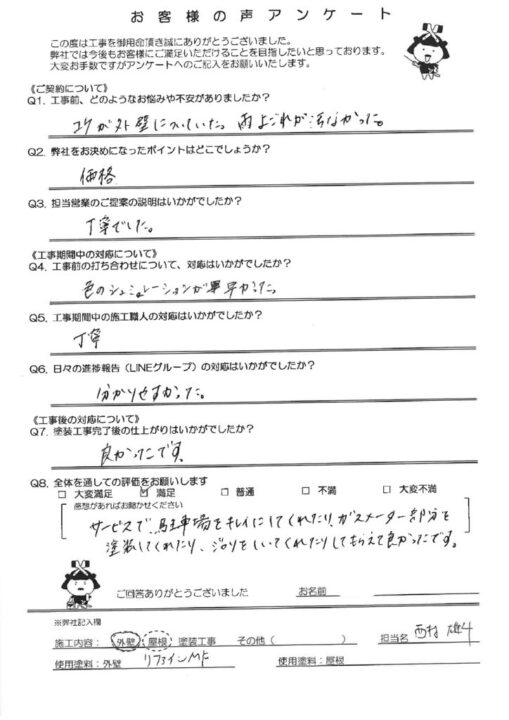 お客様の声アンケート
この度は工事を御用命頂き誠にありがとうございました。
弊社では今後もお客様にご満足いただけることを目指したいと思っております。
大変お手数ですがアンケートへのご記入をお願いいたします。
《ご契約について》
Q1. 工事前、どのようなお悩みや不安がありましたか?
コケが外壁についていた。雨よごれが
Q2. 弊社をお決めになったポイントはどこでしょうか?
価格
Q3. 担当営業のご提案の説明はいかがでしたか?
丁寧でした。
《工事期間中の対応について》
Q4. 工事前の打ち合わせについて、対応はいかがでしたか?
色のシュミレーションが早かった。
Q5. 工事期間中の施工職人の対応はいかがでしたか?
丁寧
Q6. 日々の進捗報告(LINEグループ)の対応はいかがでしたか?
分かりやすかった。
《工事後の対応について》
Q7. 塗装工事完了後の仕上がりはいかがでしたか?
良かったです
Q8. 全体を通しての評価をお願いします
□ 大変満足 ☑ 満足 □ 普通 □ 不満 □ 大変不満
感想があればお聞かせください
サービスで、駐車場をキレイにしてくれたり、ガスメーター部分を
塗装してくれたり、ジャリをしいてくれたりしてもらえて良かったです。
ご回答ありがとうございました お名前
※弊社記入欄
施工内容: 外壁 屋根 塗装工事 その他( ) 担当名 西村
使用塗料:外壁 リファインMF 使用塗料:屋根